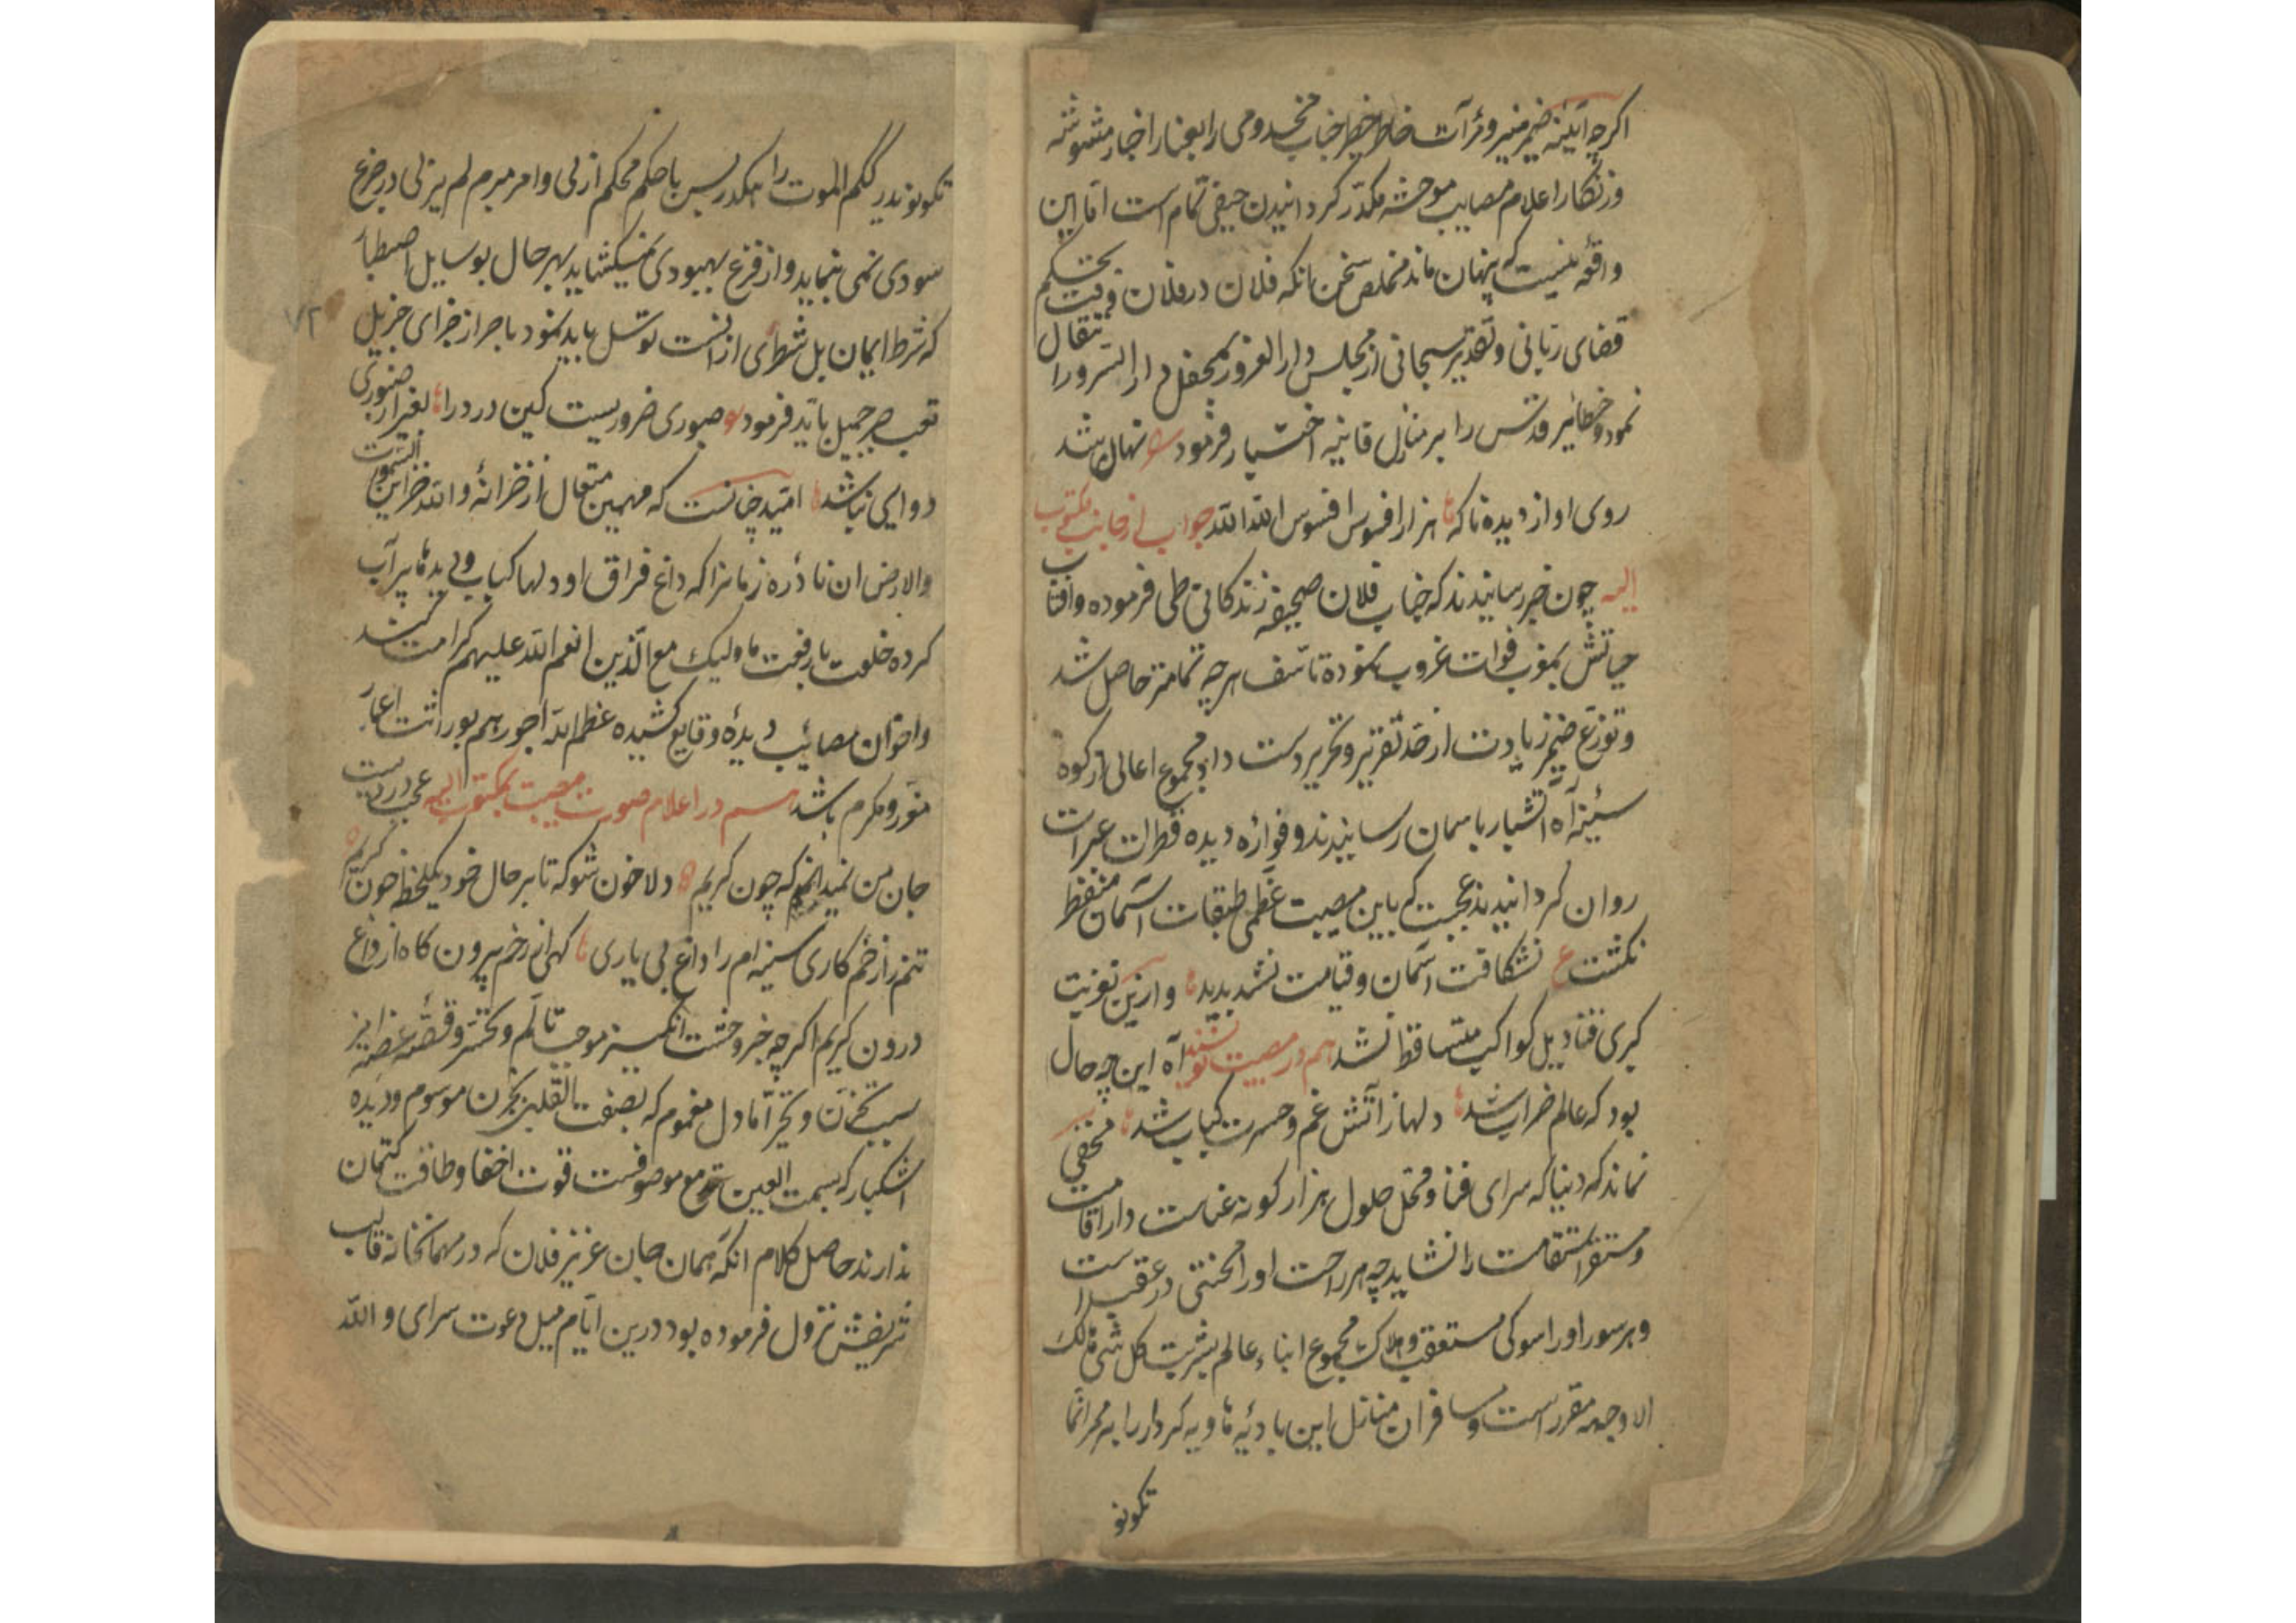 اکرچه آیینه ضمیر منیر و مرآت خاطر خطیر جناب مخدومی را بغبار اخبار مشوشه
و زنکار اعلام مصایب موحشه مکدر کردانیدن حیفی تمام است اما این
واقعه نیست که پنهان ماند مخلص سخن انکه فلان در فلان وقت بحکم
قضای ربانی و تقدیر سبحانی از مجلس دار الغرور بمحفل دار السرور انتقال
نمود و حظائر قدس را بر منازل فانیه اختیار فرمود نهان شد
روی او از دیده ناکه هزار افسوس افسوس الله الله جواب از جانب مکتوب
الیه چون خبر رسانیدند که جناب فلان صحیفه زندکانی طی فرموده و افتاب
حیاتش بمغرب فوات غروب نموده تاسف هرچه تمامتر حاصل شد
و توزع ضمیر زیادت از حد تقریر و تحریر دست داد مجموع اعالی از کوه
سینه آه آتشبار باسمان رسانیدند و فواره دیده قطرات عبرات
روان کردانیدند عجبست که باین مصیبت عظمی طبقات آسمان منفطر
نکشت ع نشکافت آسمان و قیامت نشد بدید و ازین تعزیت
کبری قنادیل کواکب متساقط نشد هم در مصیبت نویسند آه این چه حال
بود که عالم خراب شد دلها ز آتش غم و حسرت کباب شد مخفی
نماند که دنیا که سرای فنا و محل حلول هزار کونه عناست دار اقامت
و مستقر استقامت را نشاید چه هر راحت او را محنتی در عقب است
و هر سور او را سوکی مستعقب و هلاک مجموع ابناء عالم بشریت کل شئ هالک
الا وجهه مقرر است و مسافران منازل این بادیه هاویه کردار را به ممر اینما
تکونو
تکونو یدرککم الموت را هکدر پس با حکم محکم ازلی و امر مبرم لم یزلی در جزع
سودی نمی نماید و از فزع بهبودی نمیکشاید بهر حال بوسایل اصطبار
که شرط ایمان بل شطری از انست توسل باید نمود با جر از جزای جزیل
تعب صبر جمیل باید فرمود صبوری ضروریست کین درد را بغیر از صبوری
دوایی نباشد امید چنانست که مهیمن متعال از خزانه و لله خزاین السموات
والارض ان نادره زمانرا که داغ فراق او دلها کباب و دیدها پر آب
کرده خلعت با رفعت فاولیک مع الذین انعم الله علیهم کرامت کند
و اخوان مصائب دیده و قایع کشیده عظم الله اجورهم بوراثت اعمار
منور و مکرم باشد هم در اعلام صورت مصیبت بمکتوب الیه عجب دردیست
جان من نمیدانم که چون کریم دلا خون شو که تا بر حال خود یکلحظه خون کریم
تنم را زخم کاری سینه ام را داغ بی یاری کهی از زخم بیرون کاه از داغ
درون کریم اکرچه خبر وحشت انکیز موجب تالم و تحسر و قصه غصه امیز
سبب تحزن و تحیر اما دل مغموم که بصفت القلب یحزن موسوم و دیده
اشکبار که بسمت العین تدمع موصوفست قوت اخفا و طاقت کتمان
ندارند حاصل کلام انکه همان جان عزیز فلان که در مهمانخانه قالب
شریفش نزول فرموده بود درین ایام میل دعوت سرای و الله
۷۲